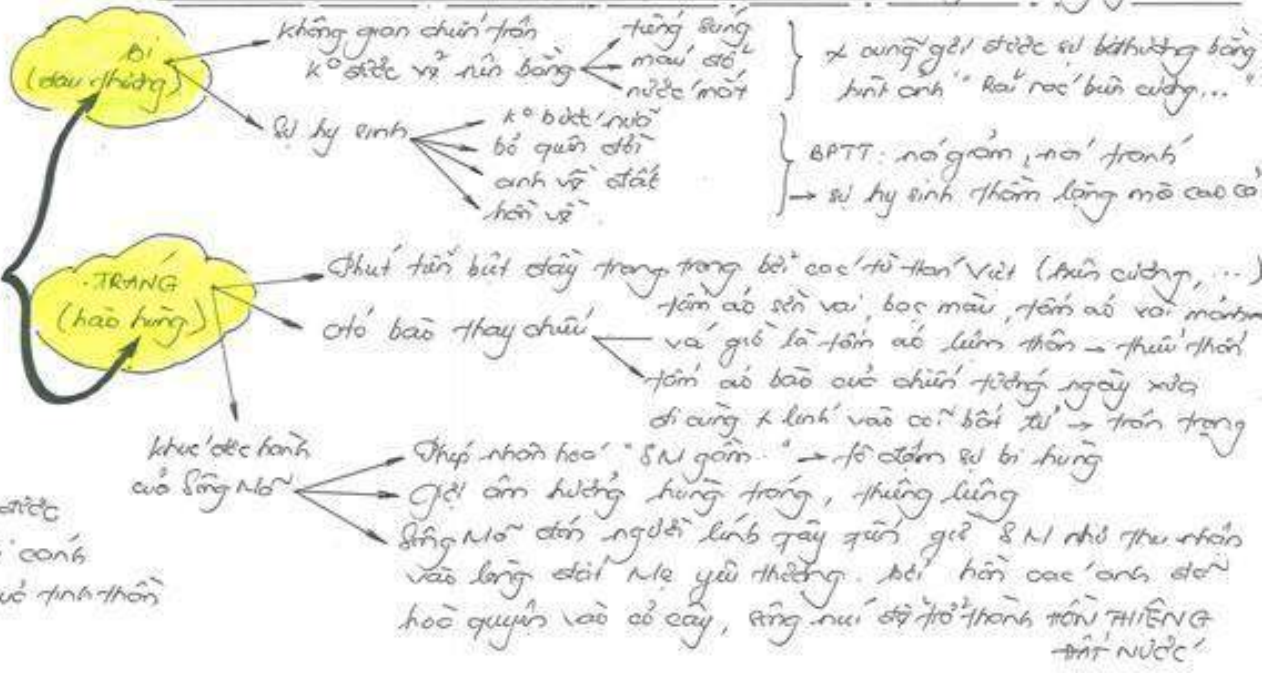 BI
(đau thương)
không gian chiến trận
k° được vẽ nên bằng
tiếng súng
máu đổ
nước mắt
x cũng gợi được sự bi thương bằng
hình ảnh "Rải rác biên cương,..."
Sự hy sinh
k° bước nữa
bỏ quên đời
anh về đất
hồn về
BPTT: nói giảm, nói tránh
→ sự hy sinh thầm lặng mà cao cả
TRÁNG
(hào hùng)
Phút tiễn biệt đầy trang trọng bởi các từ Hán Việt (biên cương, ...)
áo bào thay chiếu
tấm áo sờn vai, bạc màu, tấm áo vá mảnh
và giờ là tấm áo liệm thân → thiếu thốn
tấm áo bào của chiến tướng ngày xưa
đi cùng x lính vào cõi bất tử → trân trọng
khúc độc hành
của Sông Mã
Phép nhân hoá "SM gầm.." → tô đậm sự bi hùng
Gợi âm hưởng hùng tráng, thiêng liêng
Sông Mã đón người lính Tây Tiến giờ SM như thu nhận
vào lòng đất Mẹ yêu thương. bởi hồn các anh đã
hoà quyện vào cỏ cây, sông núi để trở thành HỒN THIÊNG
ĐẤT NƯỚC
được
cảnh
tinh thần